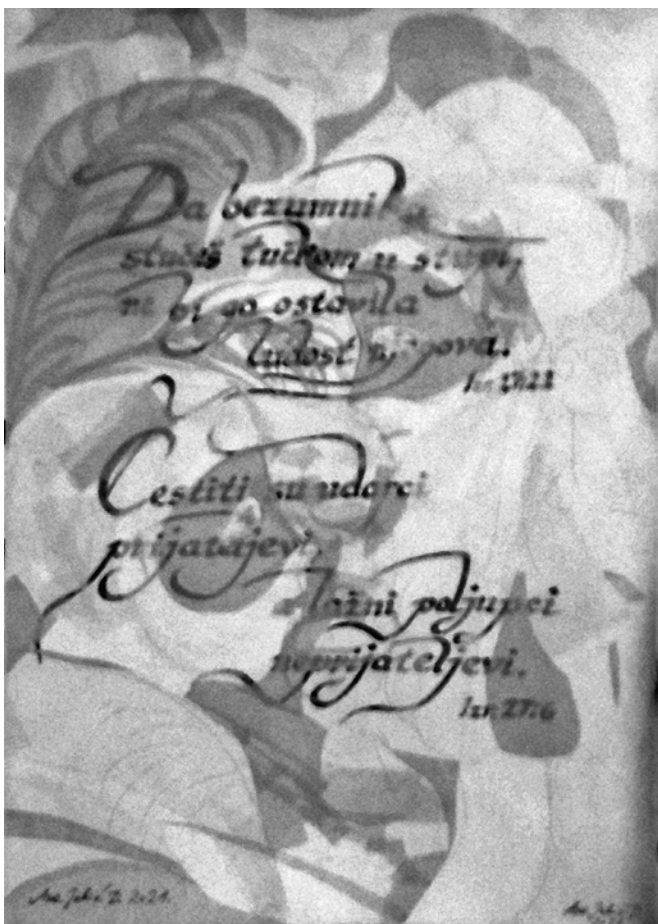 Da bezumnika
stučeš tučkom u stupi,
ne bi ga ostavila
ludost njegova.
Izr. 27:22
Čestiti su udarci
prijatejevi,
a lažni poljupci
neprijateljevi.
Izr. 27:6
2021.